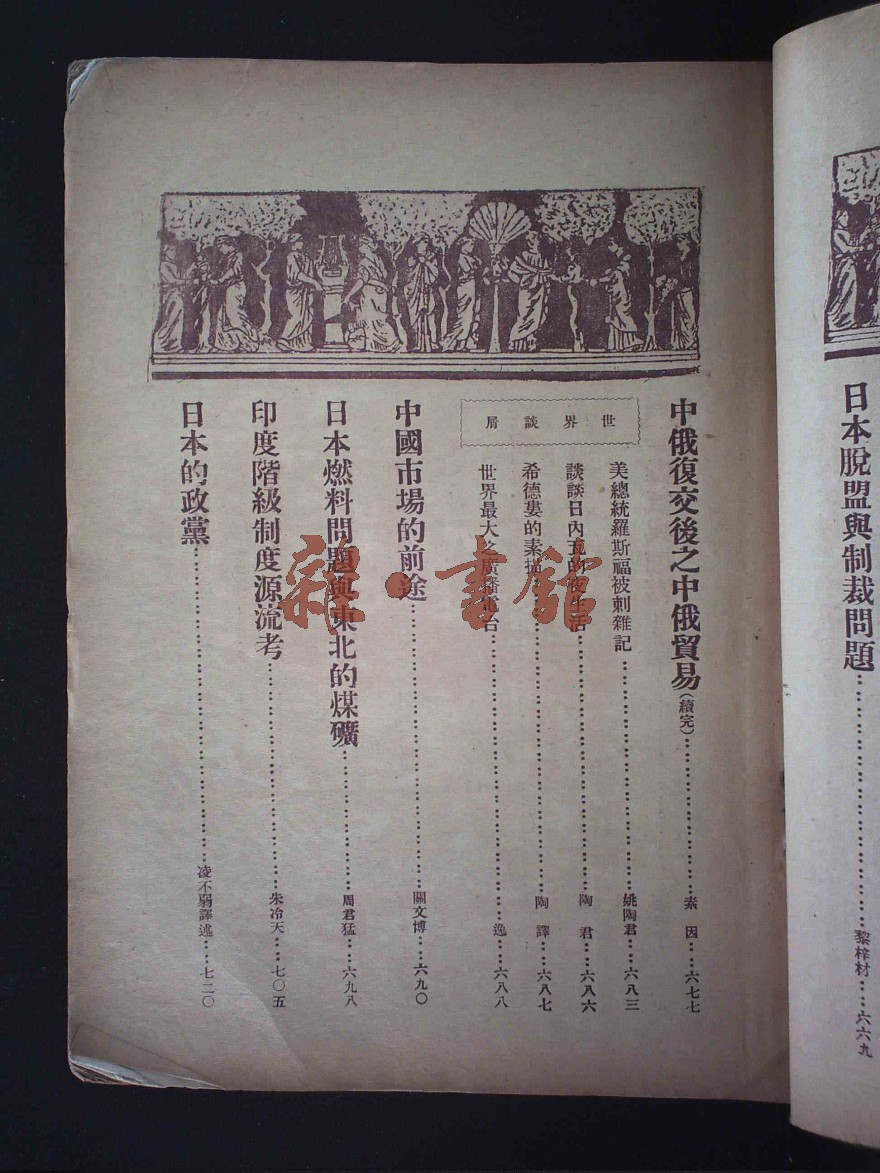 日本脫盟與制裁問題……黎梓材……六六九
中俄復交後之中俄貿易(續完)……素因……六七七
世界談屑
美總統羅斯福被刺雜記……姚陶君……六八三
談談日內瓦的夜生活……陶君……六八六
希德婁的素描……陶譯……六八七
世界最大之廣播電台……逸……六八八
中國市場的前途……關文博……六九〇
日本燃料問題與東北的煤礦……周君猛……六九八
印度階級制度源流考……朱冷天……七〇五
日本的政黨……凌不弱譯述……七二〇
雜·書館